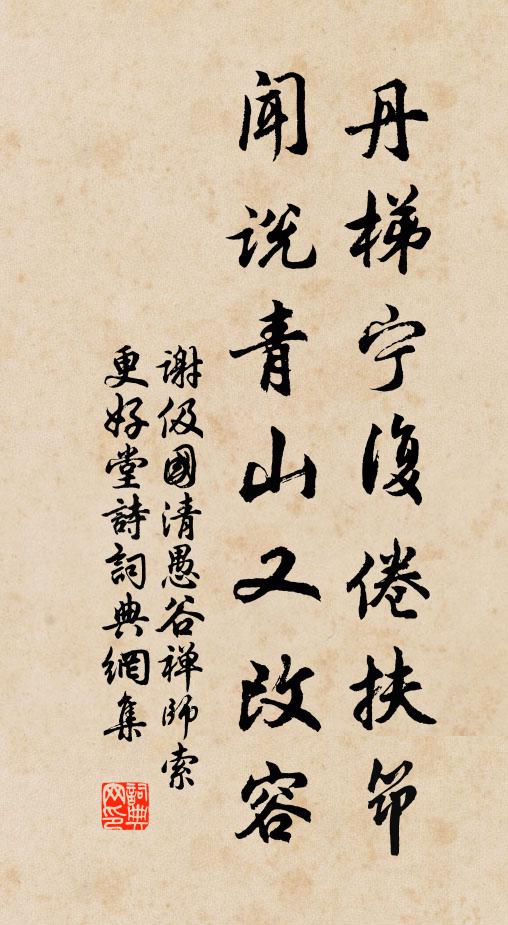 丹梯宁復倦扶笻
闻说青山又改容
谢伋國清愚谷禅師索
更好堂詩詞典網集
詞典网印